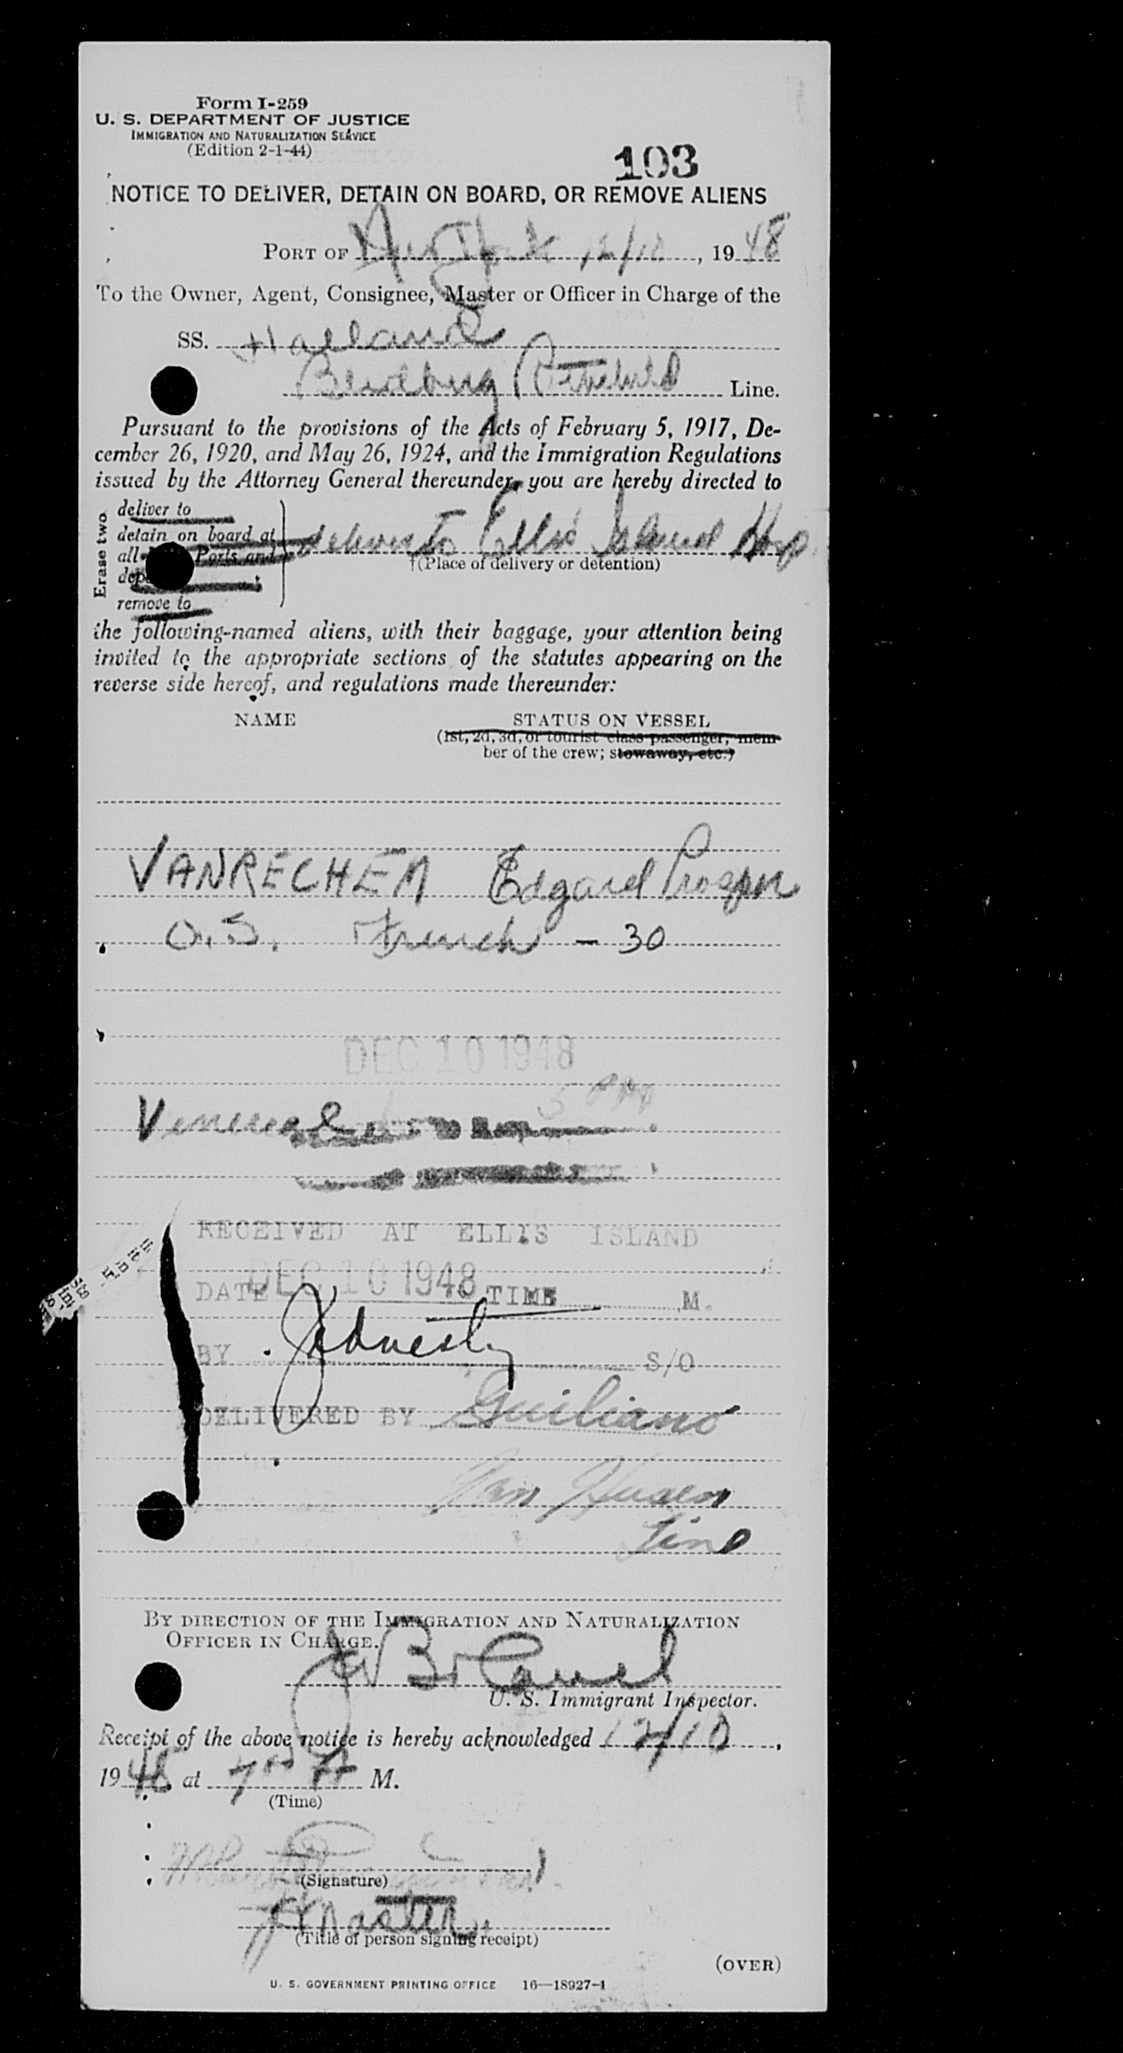 Form I-259
U. S. DEPARTMENT OF JUSTICE
IMMIGRATION AND NATURALIZATION SERVICE
(Edition 2-1-44)
103
NOTICE TO DELIVER, DETAIN ON BOARD, OR REMOVE ALIENS
PORT OF New York 12/10, 1948
To the Owner, Agent, Consignee, Master or Officer in Charge of the
SS. Halland
Line.
Pursuant to the provisions of the Acts of February 5, 1917, De-
cember 26, 1920, and May 26, 1924, and the Immigration Regulations
issued by the Attorney General thereunder, you are hereby directed to
Erase two
deliver to
detain on board at
all Ports and
remove to
deliver to Ellis Island Hosp
†(Place of delivery or detention)
the following-named aliens, with their baggage, your attention being
invited to the appropriate sections of the statutes appearing on the
reverse side hereof, and regulations made thereunder:
NAME STATUS ON VESSEL
(1st, 2d, 3d, or tourist class passenger, mem-
ber of the crew; stowaway, etc.)
VANRECHEM Edgard Prosper
O.S. French – 30
DEC 10 1948
Venereal
RECEIVED AT ELLIS ISLAND
DATE DEC 10 1948 TIME M.
BY S/O
DELIVERED BY Guiliano
Van Husen
Line
BY DIRECTION OF THE IMMIGRATION AND NATURALIZATION
OFFICER IN CHARGE.
U. S. Immigrant Inspector.
Receipt of the above notice is hereby acknowledged 12/10,
1948, at M.
(Time)
(Signature)
Master.
(Title of person signing receipt)
(OVER)
U. S. GOVERNMENT PRINTING OFFICE 16—18927-1